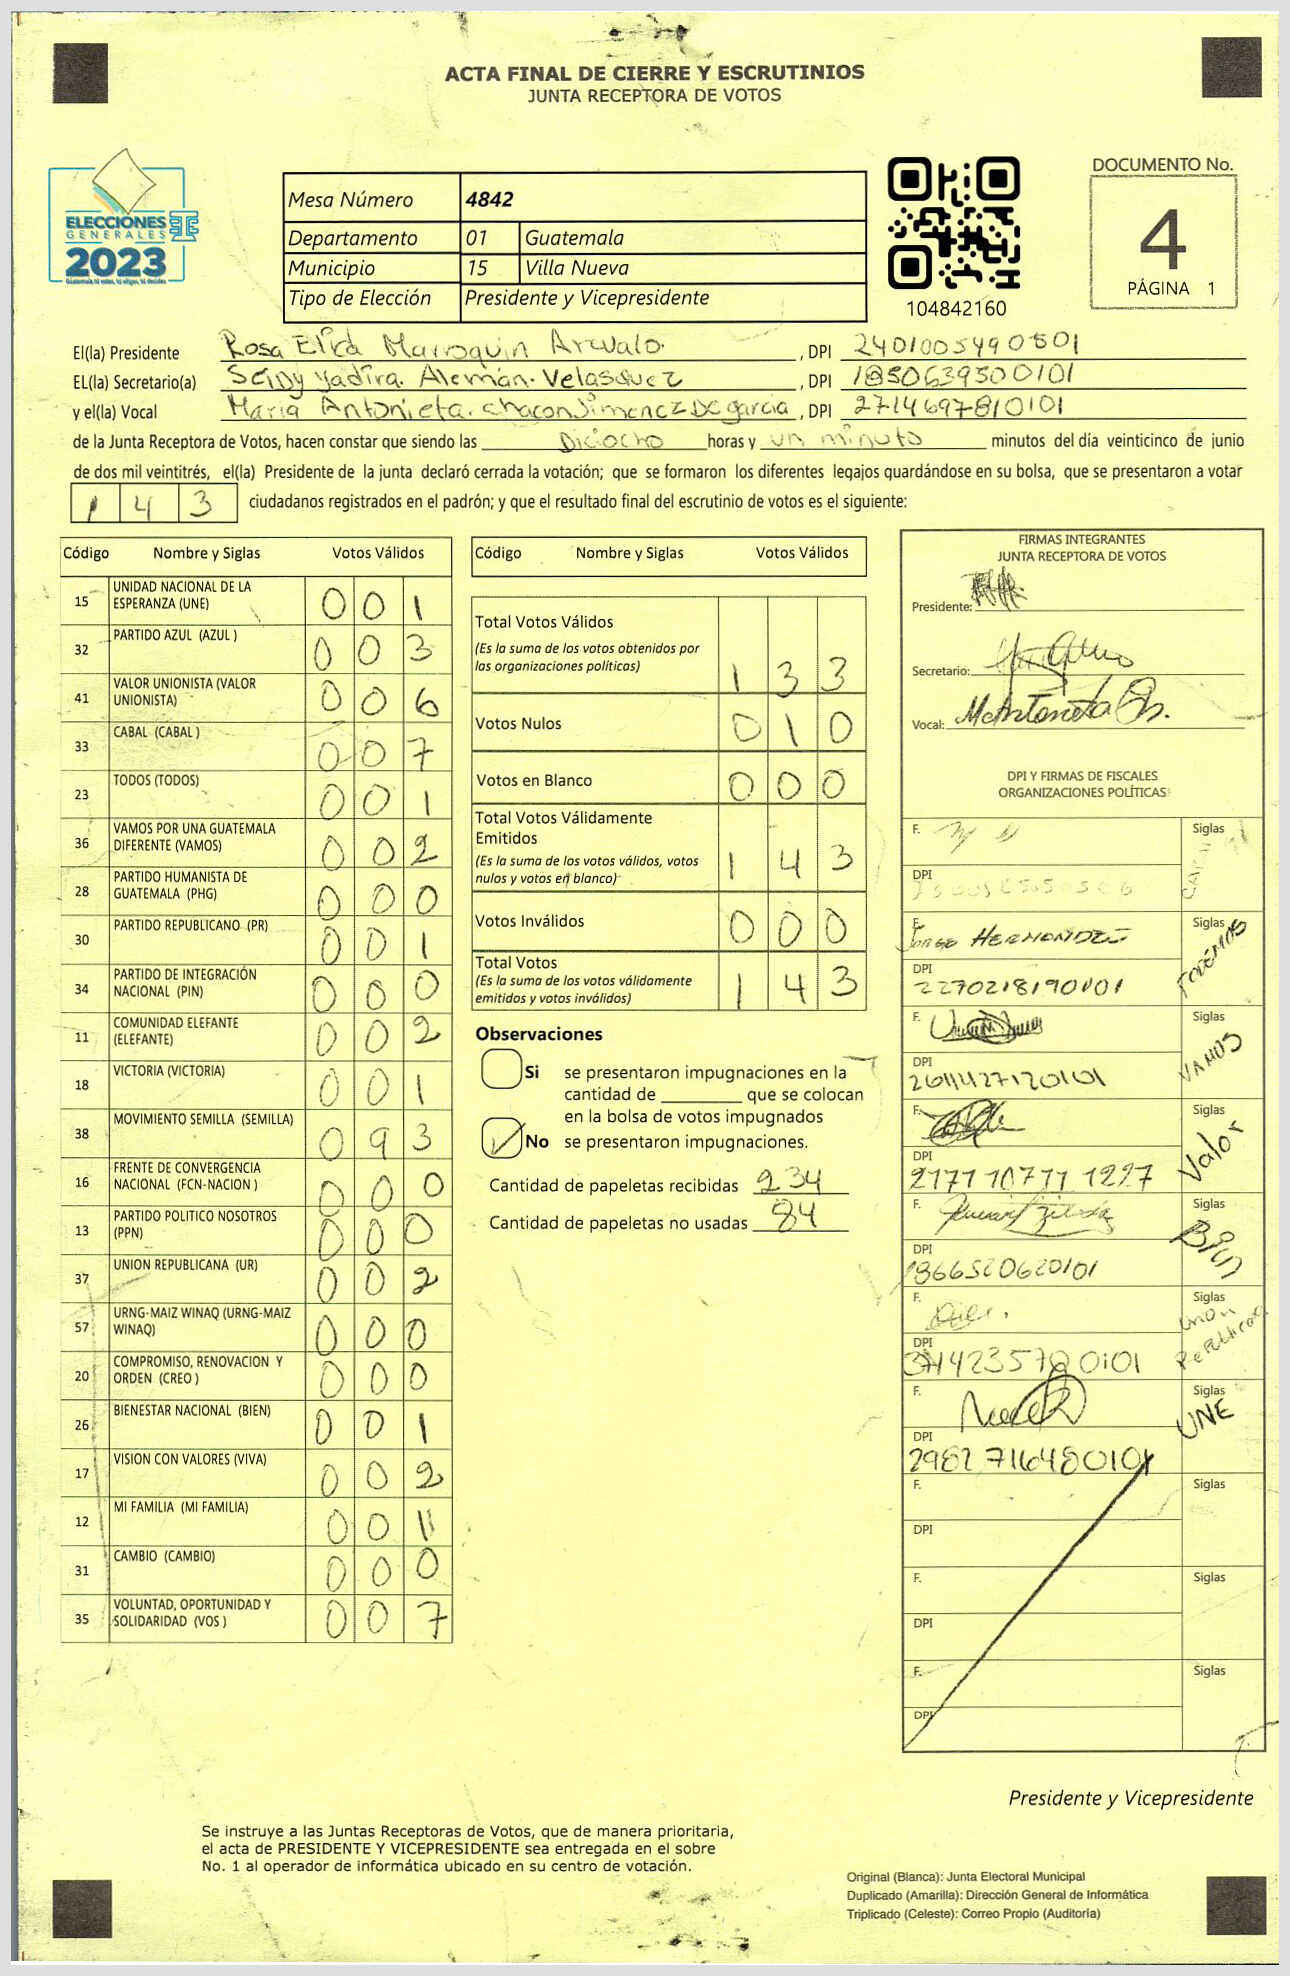 ACTA FINAL DE CIERRE Y ESCRUTINIOS
JUNTA RECEPTORA DE VOTOS
ELECCIONES
GENERALES
2023
Mesa Número 4842
Departamento 01 Guatemala
Municipio 15 Villa Nueva
Tipo de Elección Presidente y Vicepresidente
104842160
DOCUMENTO No.
4
PÁGINA 1
El(la) Presidente Rosa Elida Marroquin Arevalo , DPI
EL(la) Secretario(a) Seidy Yadira. Alemán. Velasquez , DPI 1850639500101
y el(la) Vocal Maria Antonieta. chacon Jimenez De garcia , DPI 2714697810101
de la Junta Receptora de Votos, hacen constar que siendo las Diciocho horas y un minuto minutos del día veinticinco de junio
de dos mil veintitrés, el(la) Presidente de la junta declaró cerrada la votación; que se formaron los diferentes legajos quardándose en su bolsa, que se presentaron a votar
1 4 3 ciudadanos registrados en el padrón; y que el resultado final del escrutinio de votos es el siguiente:
Código Nombre y Siglas Votos Válidos
15 UNIDAD NACIONAL DE LA ESPERANZA (UNE) 0 0 1
32 PARTIDO AZUL (AZUL ) 0 0 3
41 VALOR UNIONISTA (VALOR UNIONISTA) 0 0 6
33 CABAL (CABAL ) 0 0 7
23 TODOS (TODOS) 0 0 1
36 VAMOS POR UNA GUATEMALA DIFERENTE (VAMOS) 0 0 2
28 PARTIDO HUMANISTA DE GUATEMALA (PHG) 0 0 0
30 PARTIDO REPUBLICANO (PR) 0 0 1
34 PARTIDO DE INTEGRACIÓN NACIONAL (PIN) 0 0 0
11 COMUNIDAD ELEFANTE (ELEFANTE) 0 0 2
18 VICTORIA (VICTORIA) 0 0 1
38 MOVIMIENTO SEMILLA (SEMILLA) 0 9 3
16 FRENTE DE CONVERGENCIA NACIONAL (FCN-NACION ) 0 0 0
13 PARTIDO POLITICO NOSOTROS (PPN) 0 0 0
37 UNION REPUBLICANA (UR) 0 0 2
57 URNG-MAIZ WINAQ (URNG-MAIZ WINAQ) 0 0 0
20 COMPROMISO, RENOVACION Y ORDEN (CREO ) 0 0 0
26 BIENESTAR NACIONAL (BIEN) 0 0 1
17 VISION CON VALORES (VIVA) 0 0 2
12 MI FAMILIA (MI FAMILIA) 0 0 11
31 CAMBIO (CAMBIO) 0 0 0
35 VOLUNTAD, OPORTUNIDAD Y SOLIDARIDAD (VOS ) 0 0 7
Código Nombre y Siglas Votos Válidos
Total Votos Válidos
(Es la suma de los votos obtenidos por
las organizaciones políticas) 1 3 3
Votos Nulos 0 1 0
Votos en Blanco 0 0 0
Total Votos Válidamente
Emitidos
(Es la suma de los votos válidos, votos
nulos y votos en blanco) 1 4 3
Votos Inválidos 0 0 0
Total Votos
(Es la suma de los votos válidamente
emitidos y votos inválidos) 1 4 3
Observaciones
Si se presentaron impugnaciones en la
cantidad de ________ que se colocan
en la bolsa de votos impugnados
No se presentaron impugnaciones.
Cantidad de papeletas recibidas 234
Cantidad de papeletas no usadas 84
FIRMAS INTEGRANTES
JUNTA RECEPTORA DE VOTOS
Presidente:
Secretario:
Vocal:
DPI Y FIRMAS DE FISCALES
ORGANIZACIONES POLÍTICAS
F. Siglas
DPI
F. Jorge HERNANDEZ Siglas PODEMOS
DPI
F. Siglas VAMOS
DPI
F. Siglas Valor
DPI 2177 10777 1227
F. Siglas Bien
DPI 1866520620101
F. Siglas Union Republicana
DPI
F. Siglas UNE
DPI 2982 716480101
F. Siglas
DPI
F. Siglas
DPI
F. Siglas
DPI
Presidente y Vicepresidente
Se instruye a las Juntas Receptoras de Votos, que de manera prioritaria,
el acta de PRESIDENTE Y VICEPRESIDENTE sea entregada en el sobre
No. 1 al operador de informática ubicado en su centro de votación.
Original (Blanca): Junta Electoral Municipal
Duplicado (Amarilla): Dirección General de Informática
Triplicado (Celeste): Correo Propio (Auditoría)